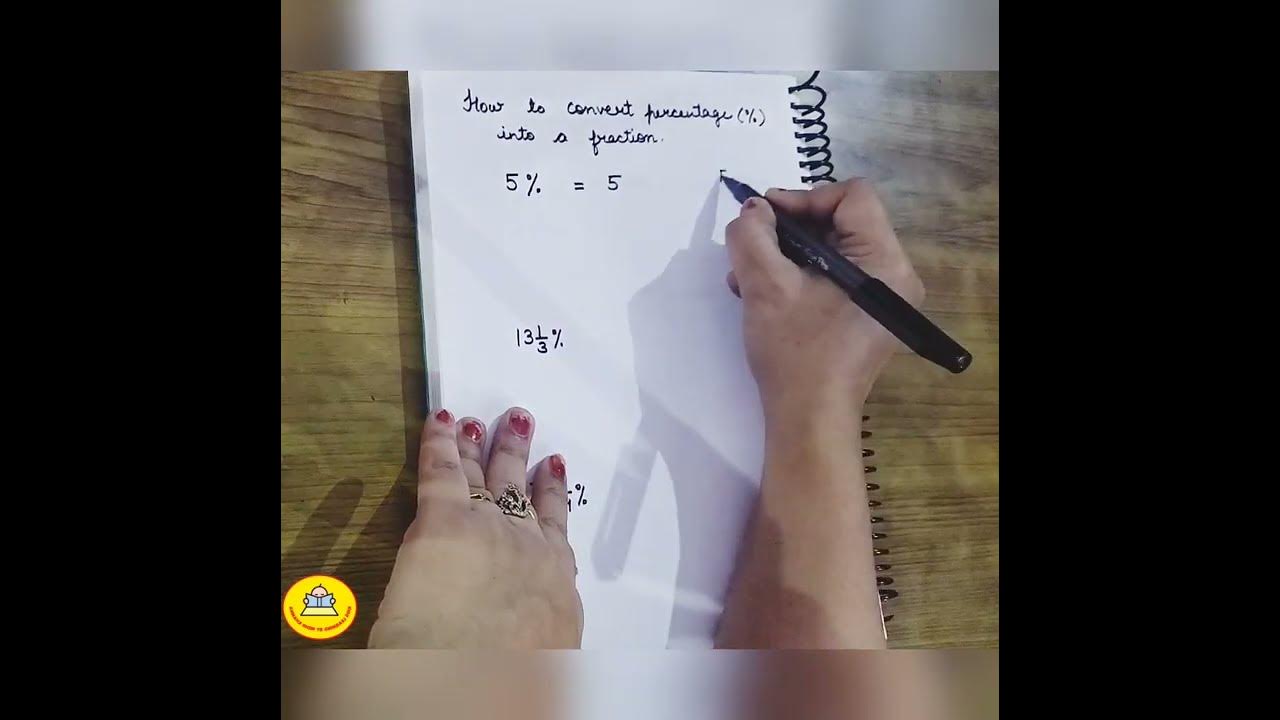 How to convert percentage (%)
into a fraction.
5% = 5
13 1/3 %
%